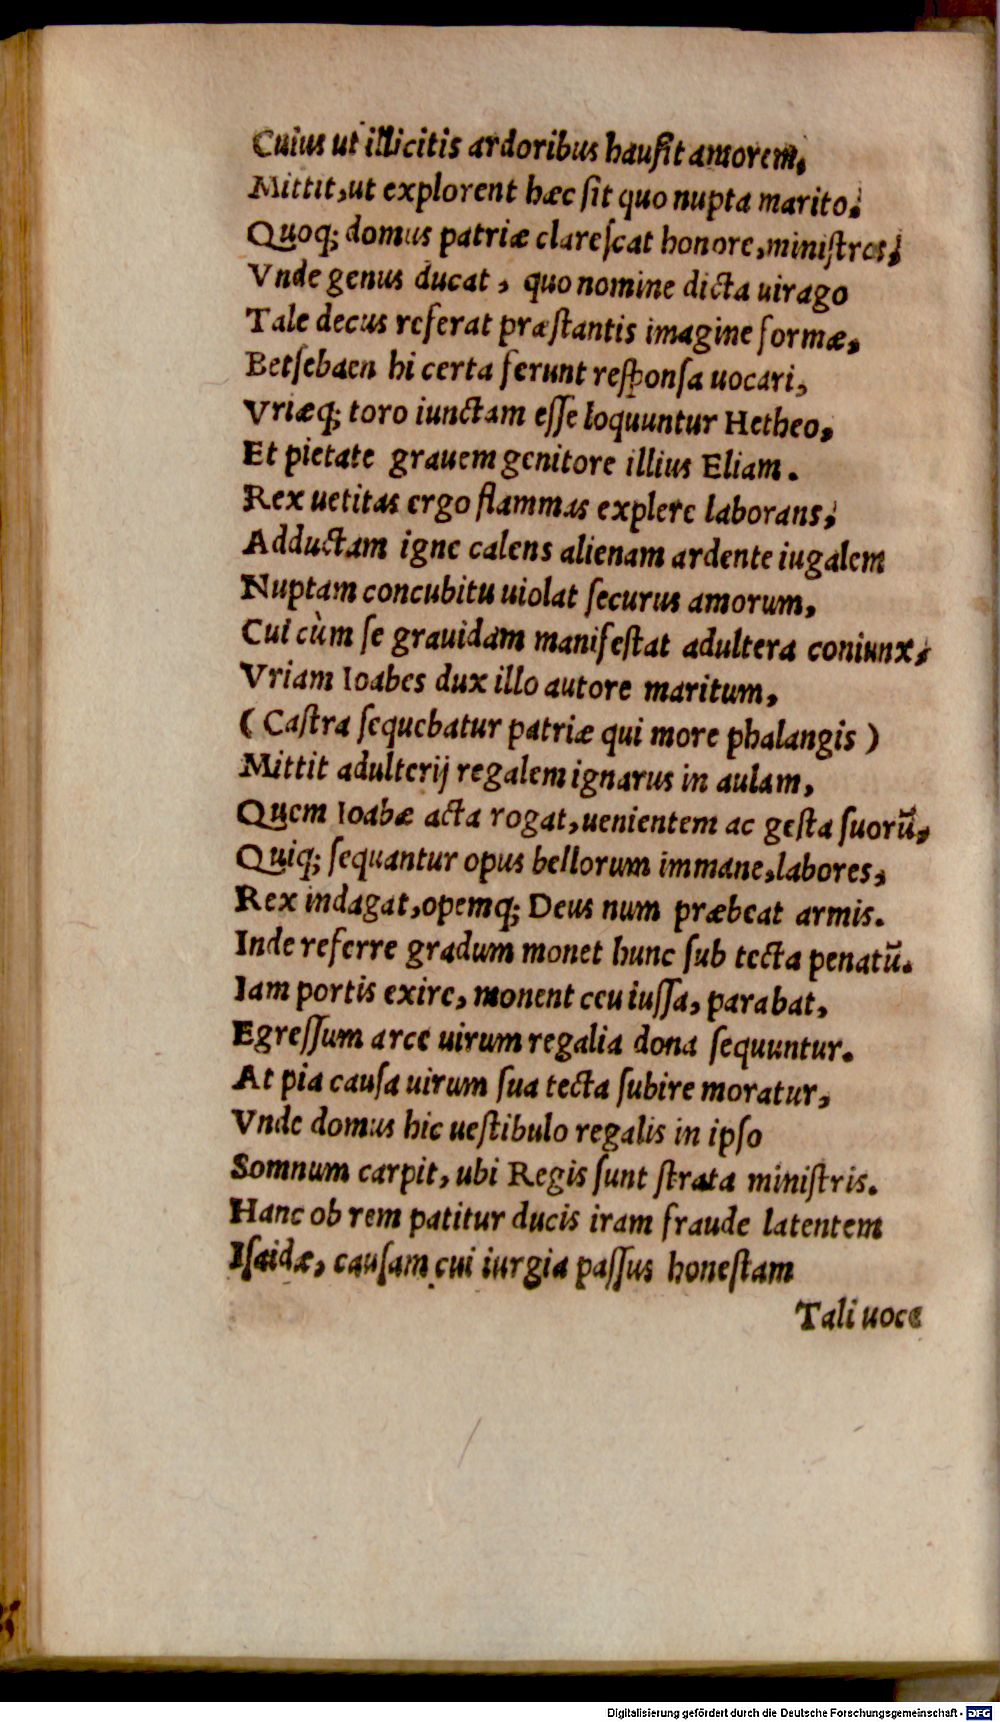 Cuius ut illicitis ardoribus hauſit amorem,
Mittit, ut explorent hæc ſit quo nupta marito,
Quoq; domus patriæ clareſcat honore, miniſtros,
Vnde genus ducat, quo nomine dicta uirago
Tale decus referat præſtantis imagine formæ,
Betſebaen hi certa ferunt reſponſa uocari,
Vriæq; toro iunctam eſſe loquuntur Hetheo,
Et pietate grauem genitore illius Eliam.
Rex uetitas ergo flammas explere laborans,
Adductam igne calens alienam ardente iugalem
Nuptam concubitu uiolat ſecurus amorum,
Cui cùm ſe grauidam manifeſtat adultera coniunx,
Vriam Ioabes dux illo autore maritum,
( Caſtra ſequebatur patriæ qui more phalangis )
Mittit adulterij regalem ignarus in aulam,
Quem Ioabæ acta rogat, uenientem ac geſta ſuorū,
Quiq; ſequantur opus bellorum immane, labores,
Rex indagat, opemq; Deus num præbeat armis.
Inde referre gradum monet hunc ſub tecta penatū.
Iam portis exire, monent ceu iuſſa, parabat,
Egreſſum arce uirum regalia dona ſequuntur.
At pia cauſa uirum ſua tecta ſubire moratur,
Vnde domus hic ueſtibulo regalis in ipſo
Somnum carpit, ubi Regis ſunt ſtrata miniſtris.
Hanc ob rem patitur ducis iram fraude latentem
Iſaidæ, cauſam cui iurgia paſſus honeſtam
Tali uoce
Digitalisierung gefördert durch die Deutsche Forschungsgemeinschaft - DFG